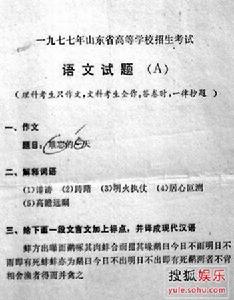 一九七七年山东省高等学校招生考试
语文试题（A）
（理科考生只作文，文科考生全作，答卷时，一律抄题）
一、作文
题目：难忘的一天
二、解释词语
(1)诽谤 (2)跨踏 (3)明火执仗 (4)居心叵测
(5)高瞻远瞩
三、给下面一段文言文加上标点，并译成现代汉语
蚌方出曝而鹬啄其肉蚌合而箝其喙鹬曰今日不雨明日不
雨即有死蚌蚌亦为鹬曰今日不出明日不出即有死鹬两者不肯
相舍渔者得而并禽之
搜狐娱乐
yule.sohu.com